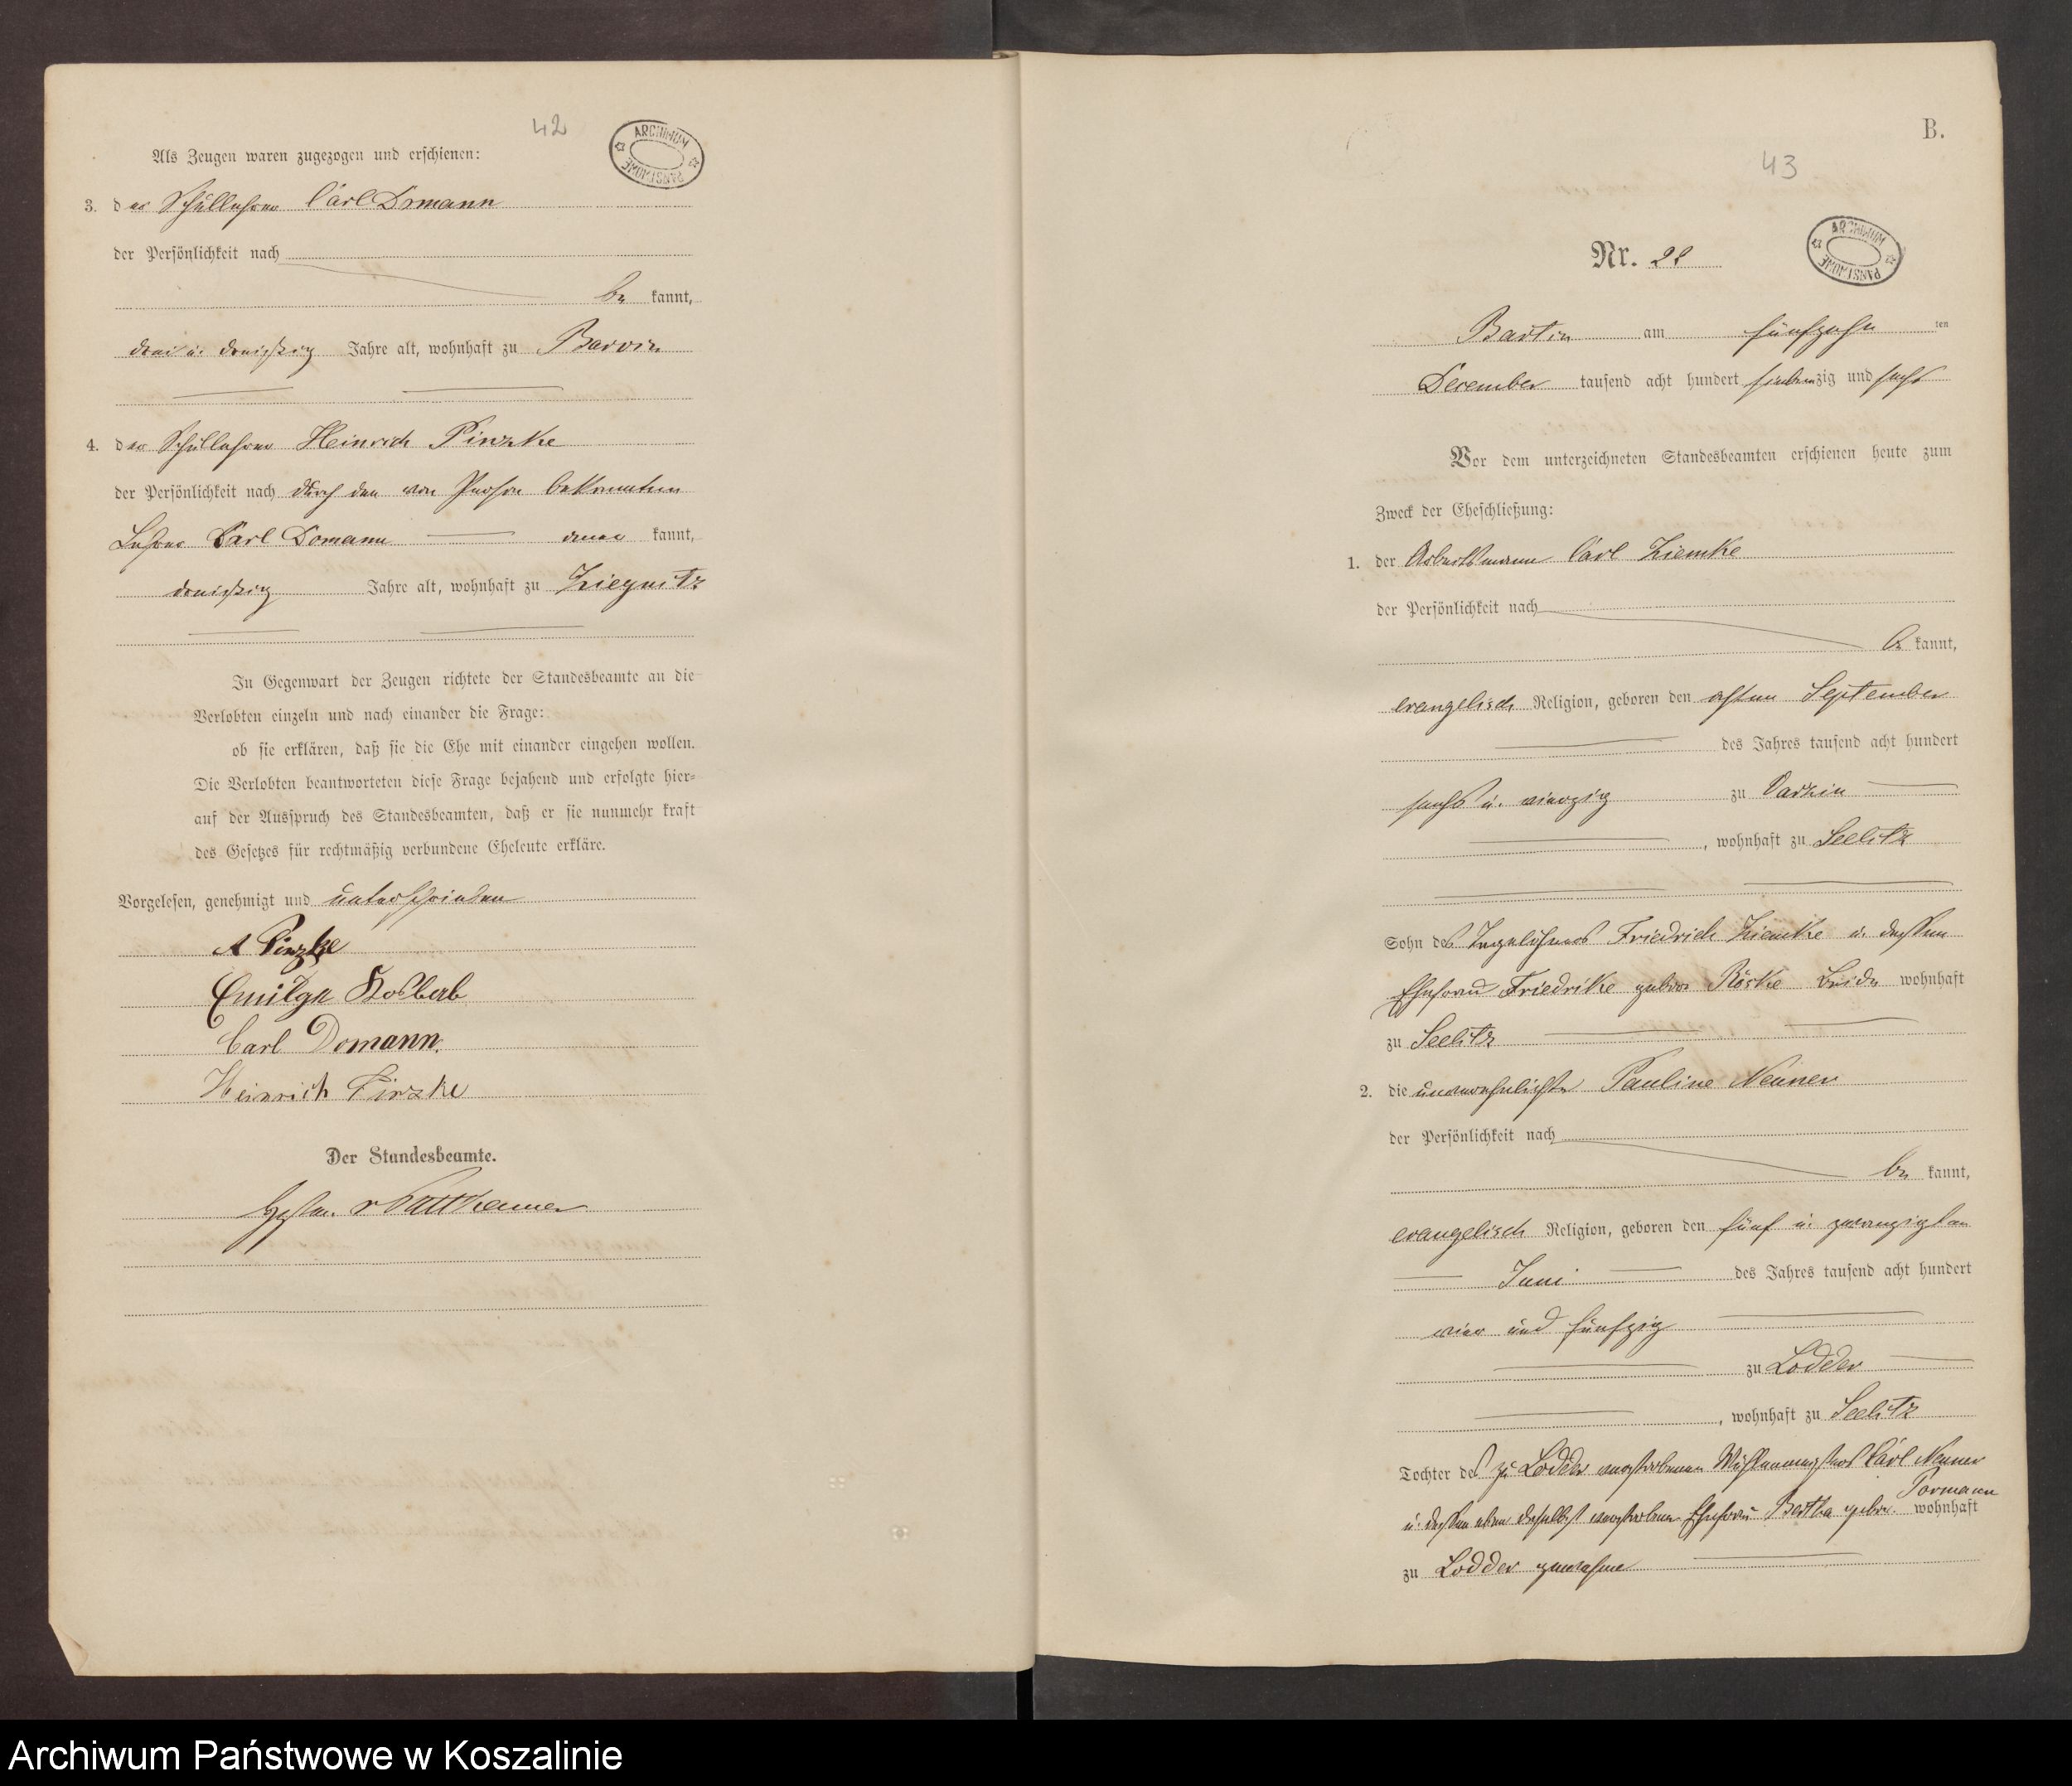 42
ARCHIWUM PAŃSTWOWE
Als Zeugen waren zugezogen und erschienen:
3. der Schullehrer Carl Domann
der Persönlichkeit nach
be kannt,
drei u. dreißig Jahre alt, wohnhaft zu Barvin
4. der Schullehrer Heinrich Pirzke
der Persönlichkeit nach durch den von Person bekannten
Lehrer Carl Domann aner kannt,
dreißig Jahre alt, wohnhaft zu Ziegnitz
In Gegenwart der Zeugen richtete der Standesbeamte an die
Verlobten einzeln und nach einander die Frage:
ob sie erklären, daß sie die Ehe mit einander eingehen wollen.
Die Verlobten beantworteten diese Frage bejahend und erfolgte hier=
auf der Ausspruch des Standesbeamten, daß er sie nunmehr kraft
des Gesetzes für rechtmäßig verbundene Eheleute erkläre.
Vorgelesen, genehmigt und unterschrieben
A Pirzke
Carl Domann.
Heinrich Pirzke
Der Standesbeamte.
v Puttkamer
B.
43
ARCHIWUM PAŃSTWOWE
Nr. 22
Bartin am fünfzehn ten
December tausend acht hundert siebenzig und sechs
Vor dem unterzeichneten Standesbeamten erschienen heute zum
Zweck der Eheschließung:
1. der Arbeitsmann Carl Ziemke
der Persönlichkeit nach
be kannt,
evangelisch Religion, geboren den achten September
des Jahres tausend acht hundert
sechs u. vierzig zu Varzin
, wohnhaft zu Seelitz
Sohn des Tagelöhners Friedrich Ziemke u. dessen
Ehefrau Friedrike gebor Röske beide wohnhaft
zu Seelitz
2. die unverehelichte Pauline Neuner
der Persönlichkeit nach
be kannt,
evangelisch Religion, geboren den fünf u. zwanzigsten
Juni des Jahres tausend acht hundert
vier und fünfzig
zu Lodder
, wohnhaft zu Seelitz
Tochter des zu Lodder verstorbenen Mühlenmeisters Carl Neuner
u. dessen eben daselbst verstorbenen Ehefrau Bertha gebor. Pormann wohnhaft
zu Lodder gewesene
Archiwum Państwowe w Koszalinie